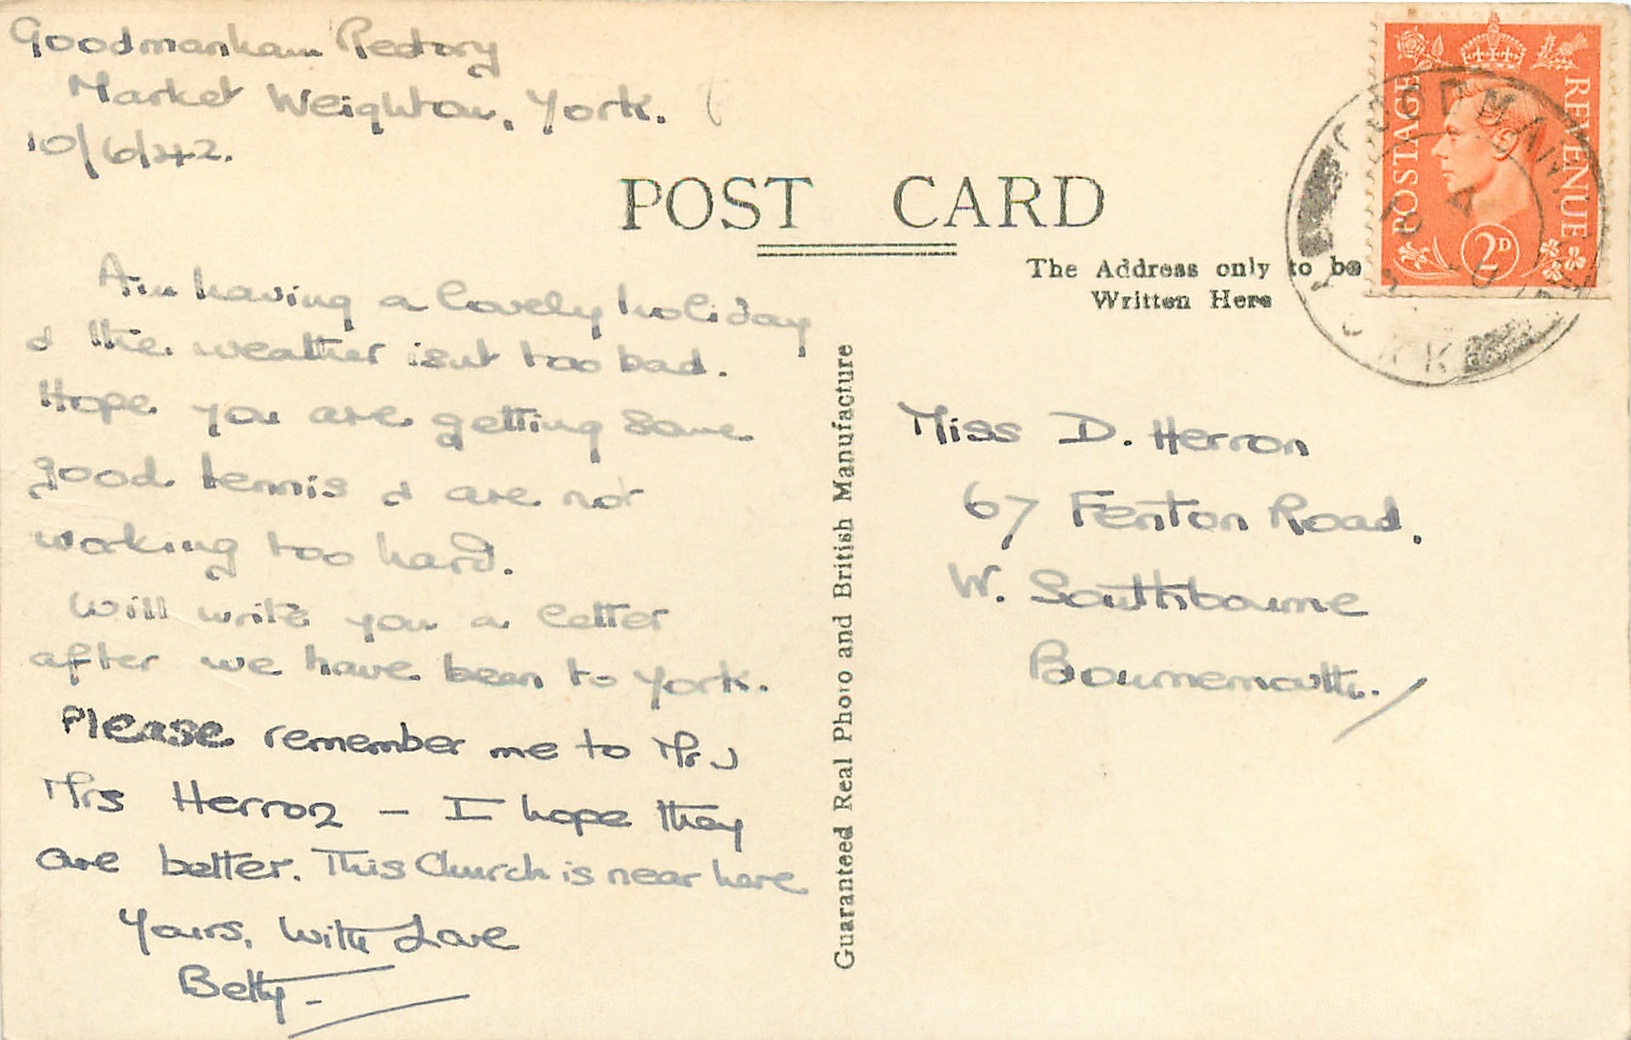 Goodmanham Rectory
Market Weighton, York.
10/6/42.
POST CARD
The Address only to be
Written Here
POSTAGE
REVENUE
2D
Am having a lovely holiday
& the weather isnt too bad.
Hope you are getting some
good tennis & are not
working too hard.
Will write you a letter
after we have been to York.
Please remember me to Mr &
Mrs Herron – I hope they
are better. This Church is near here
Yours, With Love
Betty –
Guaranteed Real Photo and British Manufacture
Miss D. Herron
67 Fenton Road.
W. Southbourne
Bournemouth.